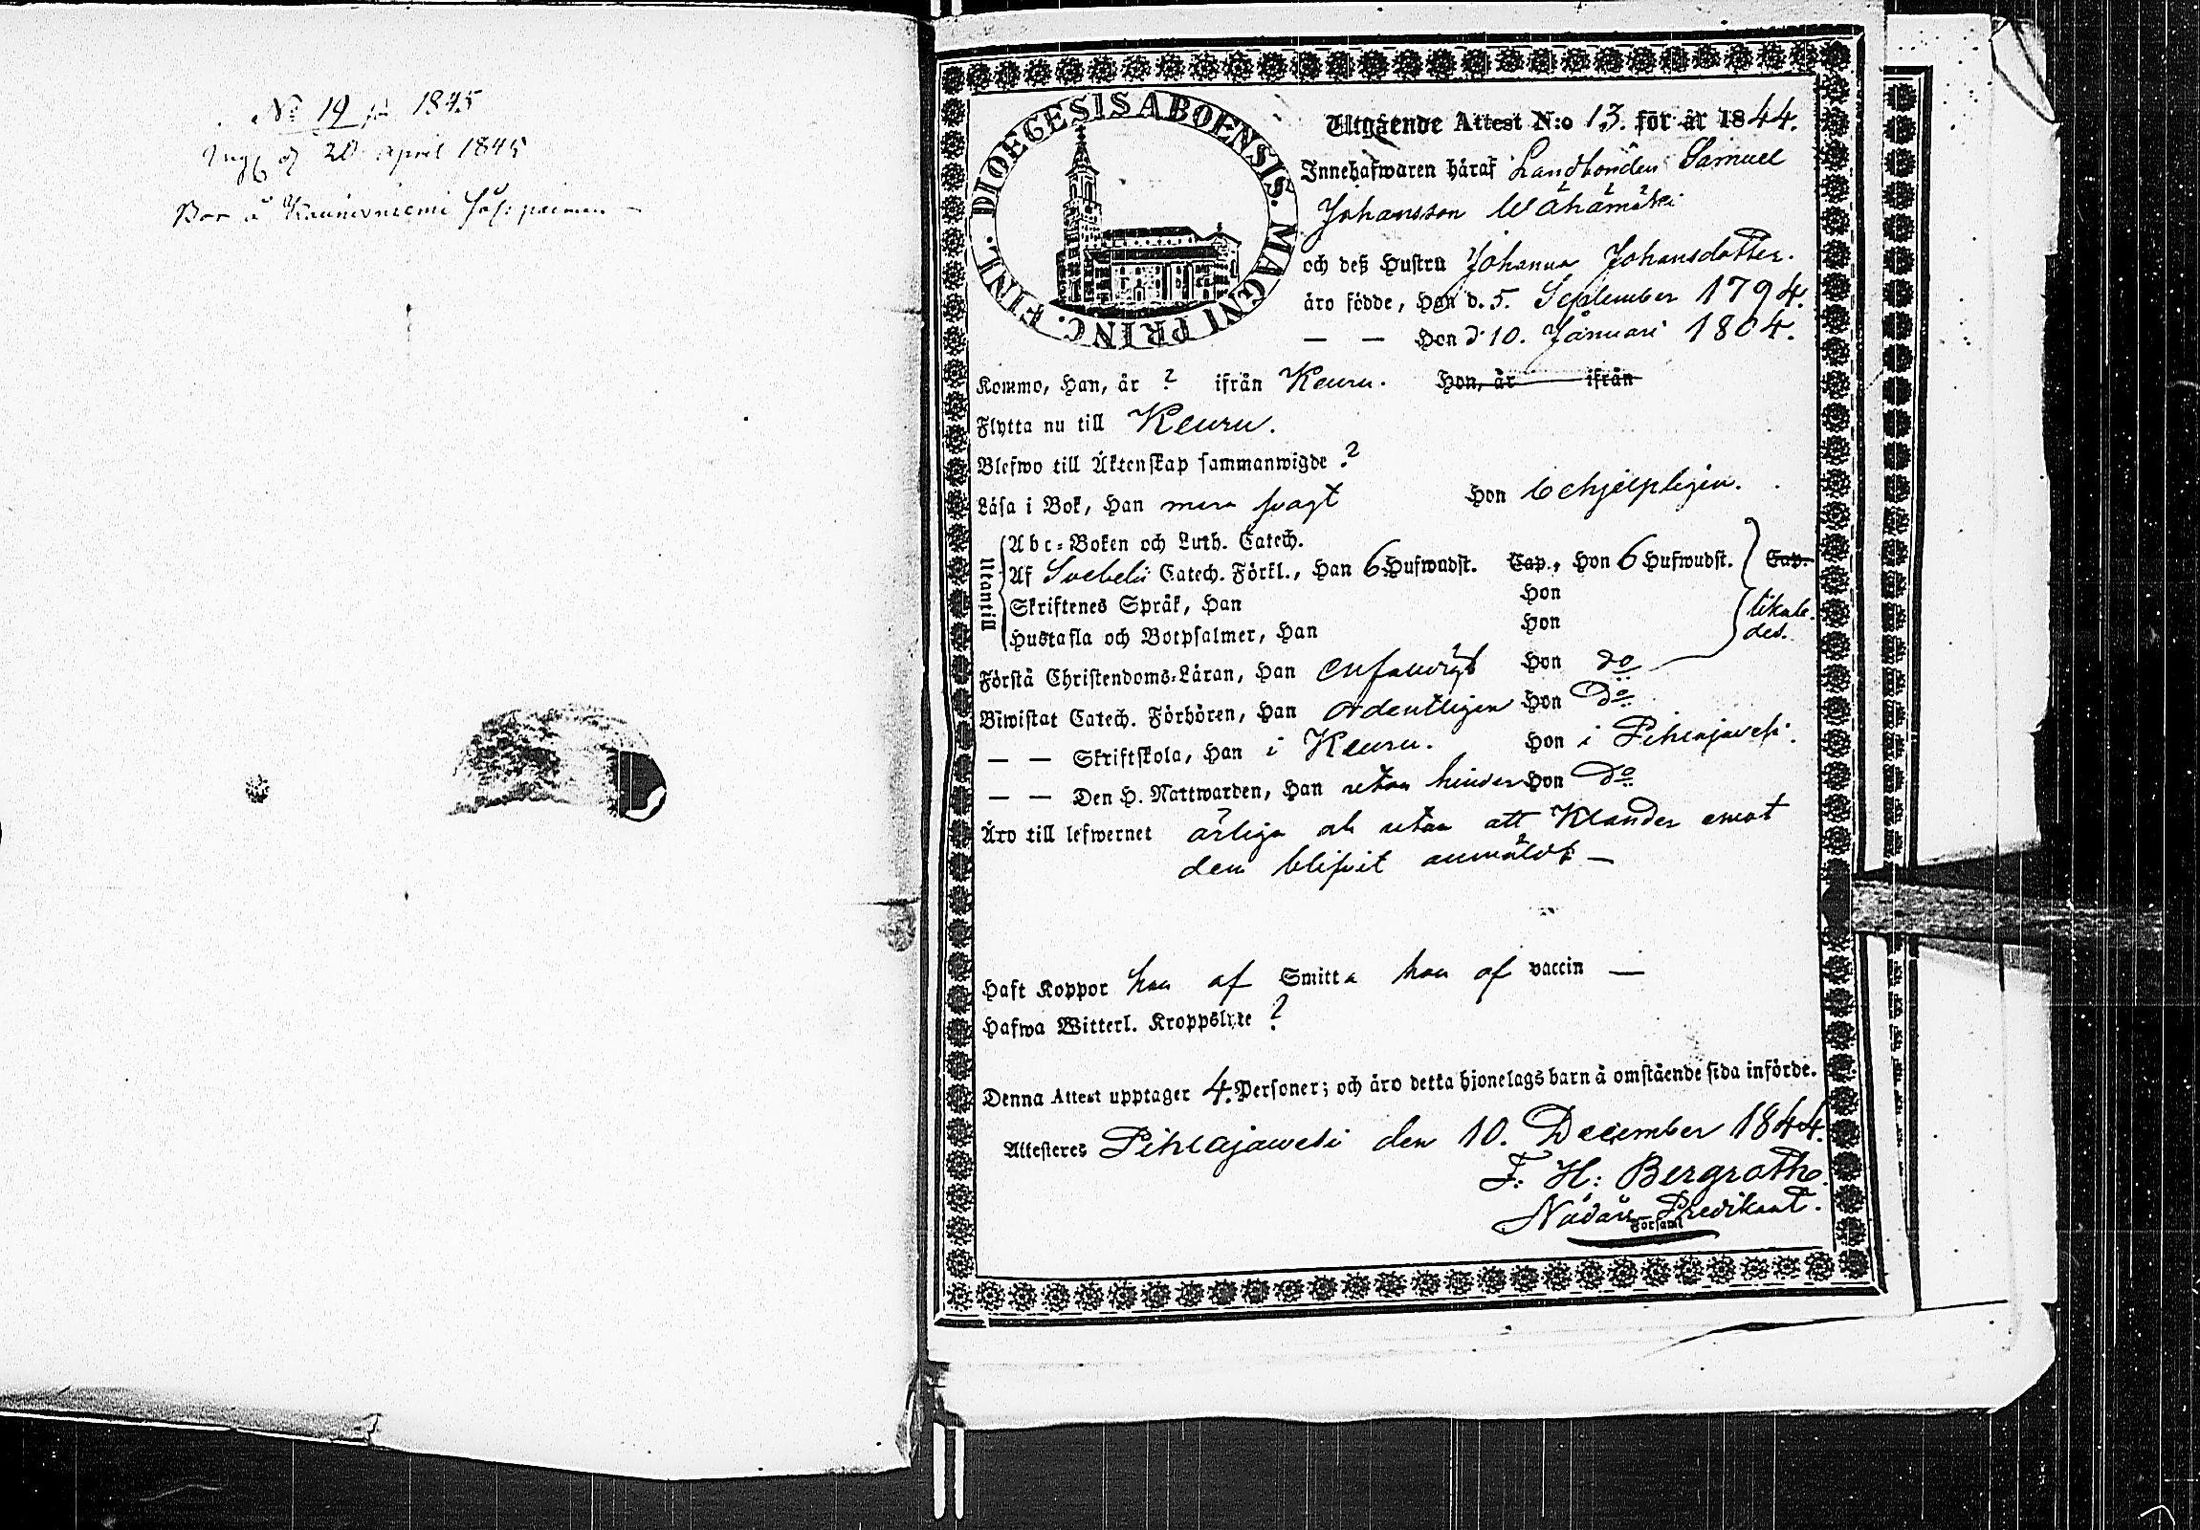 No 19 för 1845
Ing. d 20 April 1845
Bor å
DIOECESIS ABOENSIS. MAGNI PRINC. FINL.
Utgående Attest N:o 13. för år 1844.
Innehafwaren häraf Landbonden Samuel
Johansson Wähämäki
och deß Hustru Johanna Johansdotter.
äro födde, Han d. 5. September 1794.
— — Hon d 10. Januari 1804.
Kommo, Han, år ? ifrån Keuru. Hon, år ifrån
Flytta nu till Keuru.
Blefwo till Äktenskap sammanwigde ?
Läsa i Bok, Han mera svagt Hon behjelpligen.
Utantill
Abc-Boken och Luth. Catech.
Af Svebelii Catech. Förkl., Han 6 Hufwudst. Cap., Hon 6 Hufwudst. Cap.
Skriftenes Språk, Han Hon
Hustafla och Botpsalmer, Han Hon
likale-
des.
Förstå Christendoms-Läran, Han enfaldigt Hon do
Biwistat Catech. Förhören, Han ordentligen Hon Do
— — Skriftskola, Han i Keuru. Hon i Pihlajavesi.
— — Den H. Nattwarden, Han utan hinder Hon Do
Äro till lefwernet ärliga och utan att Klander emot
dem blifvit anmäldt —
Haft Koppor han af Smitta hon af vaccin —
Hafwa Witterl. Kroppslyte ?
Denna Attest upptager 4. Personer; och äro detta hjonelags barn å omstående sida införde.
Attesteres Pihlajawesi den 10. December 1844.
F. H: Bergroth
Nådår Predikant.
Församl